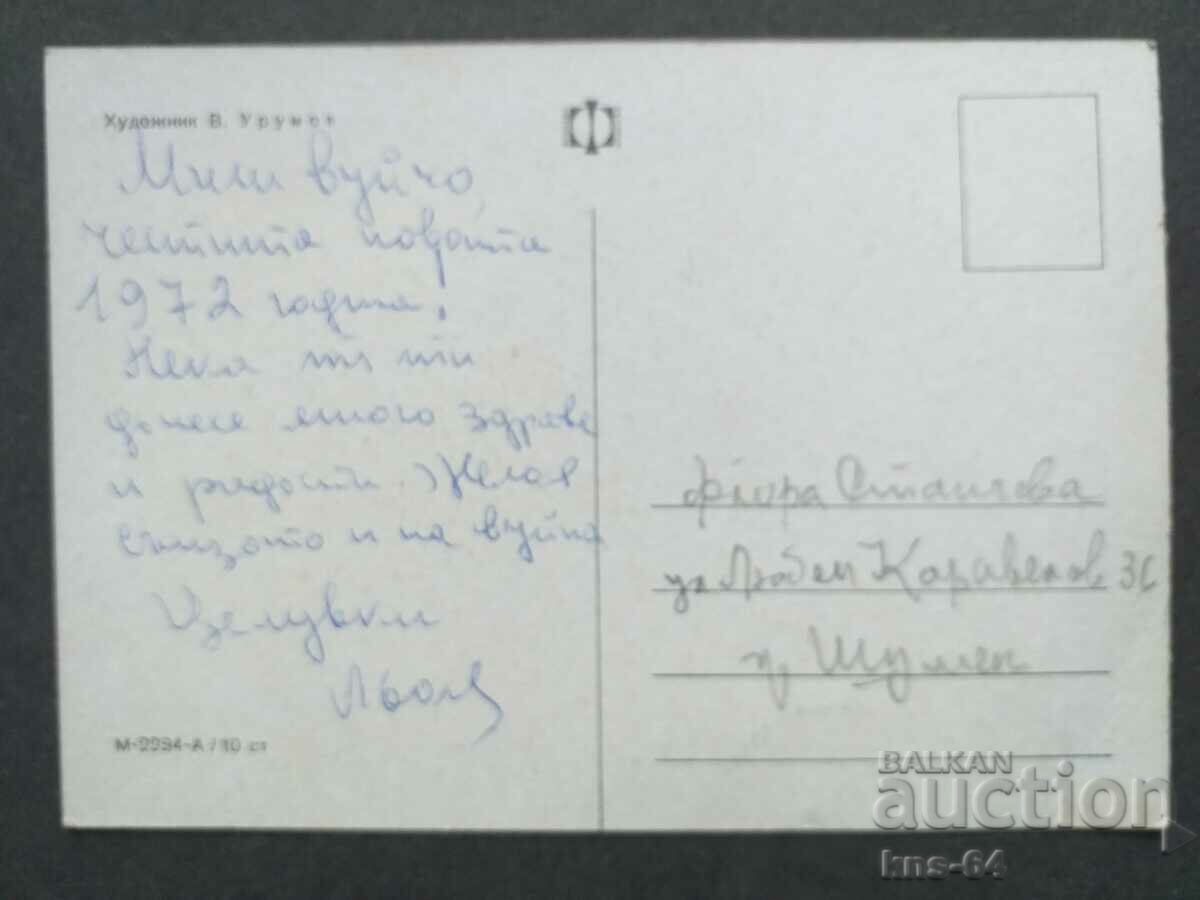 Художник В. Урумов
Мили вуйчо,
честита новата
1972 година!
Нека тя ти
донесе много здраве
и радости. Желая
същото и на вуйна
Целувки
М-9994-А / 10 ст
Фьора Станчева
ул Любен Каравелов 36
гр. Шумен
BALKAN
auction
kns-64